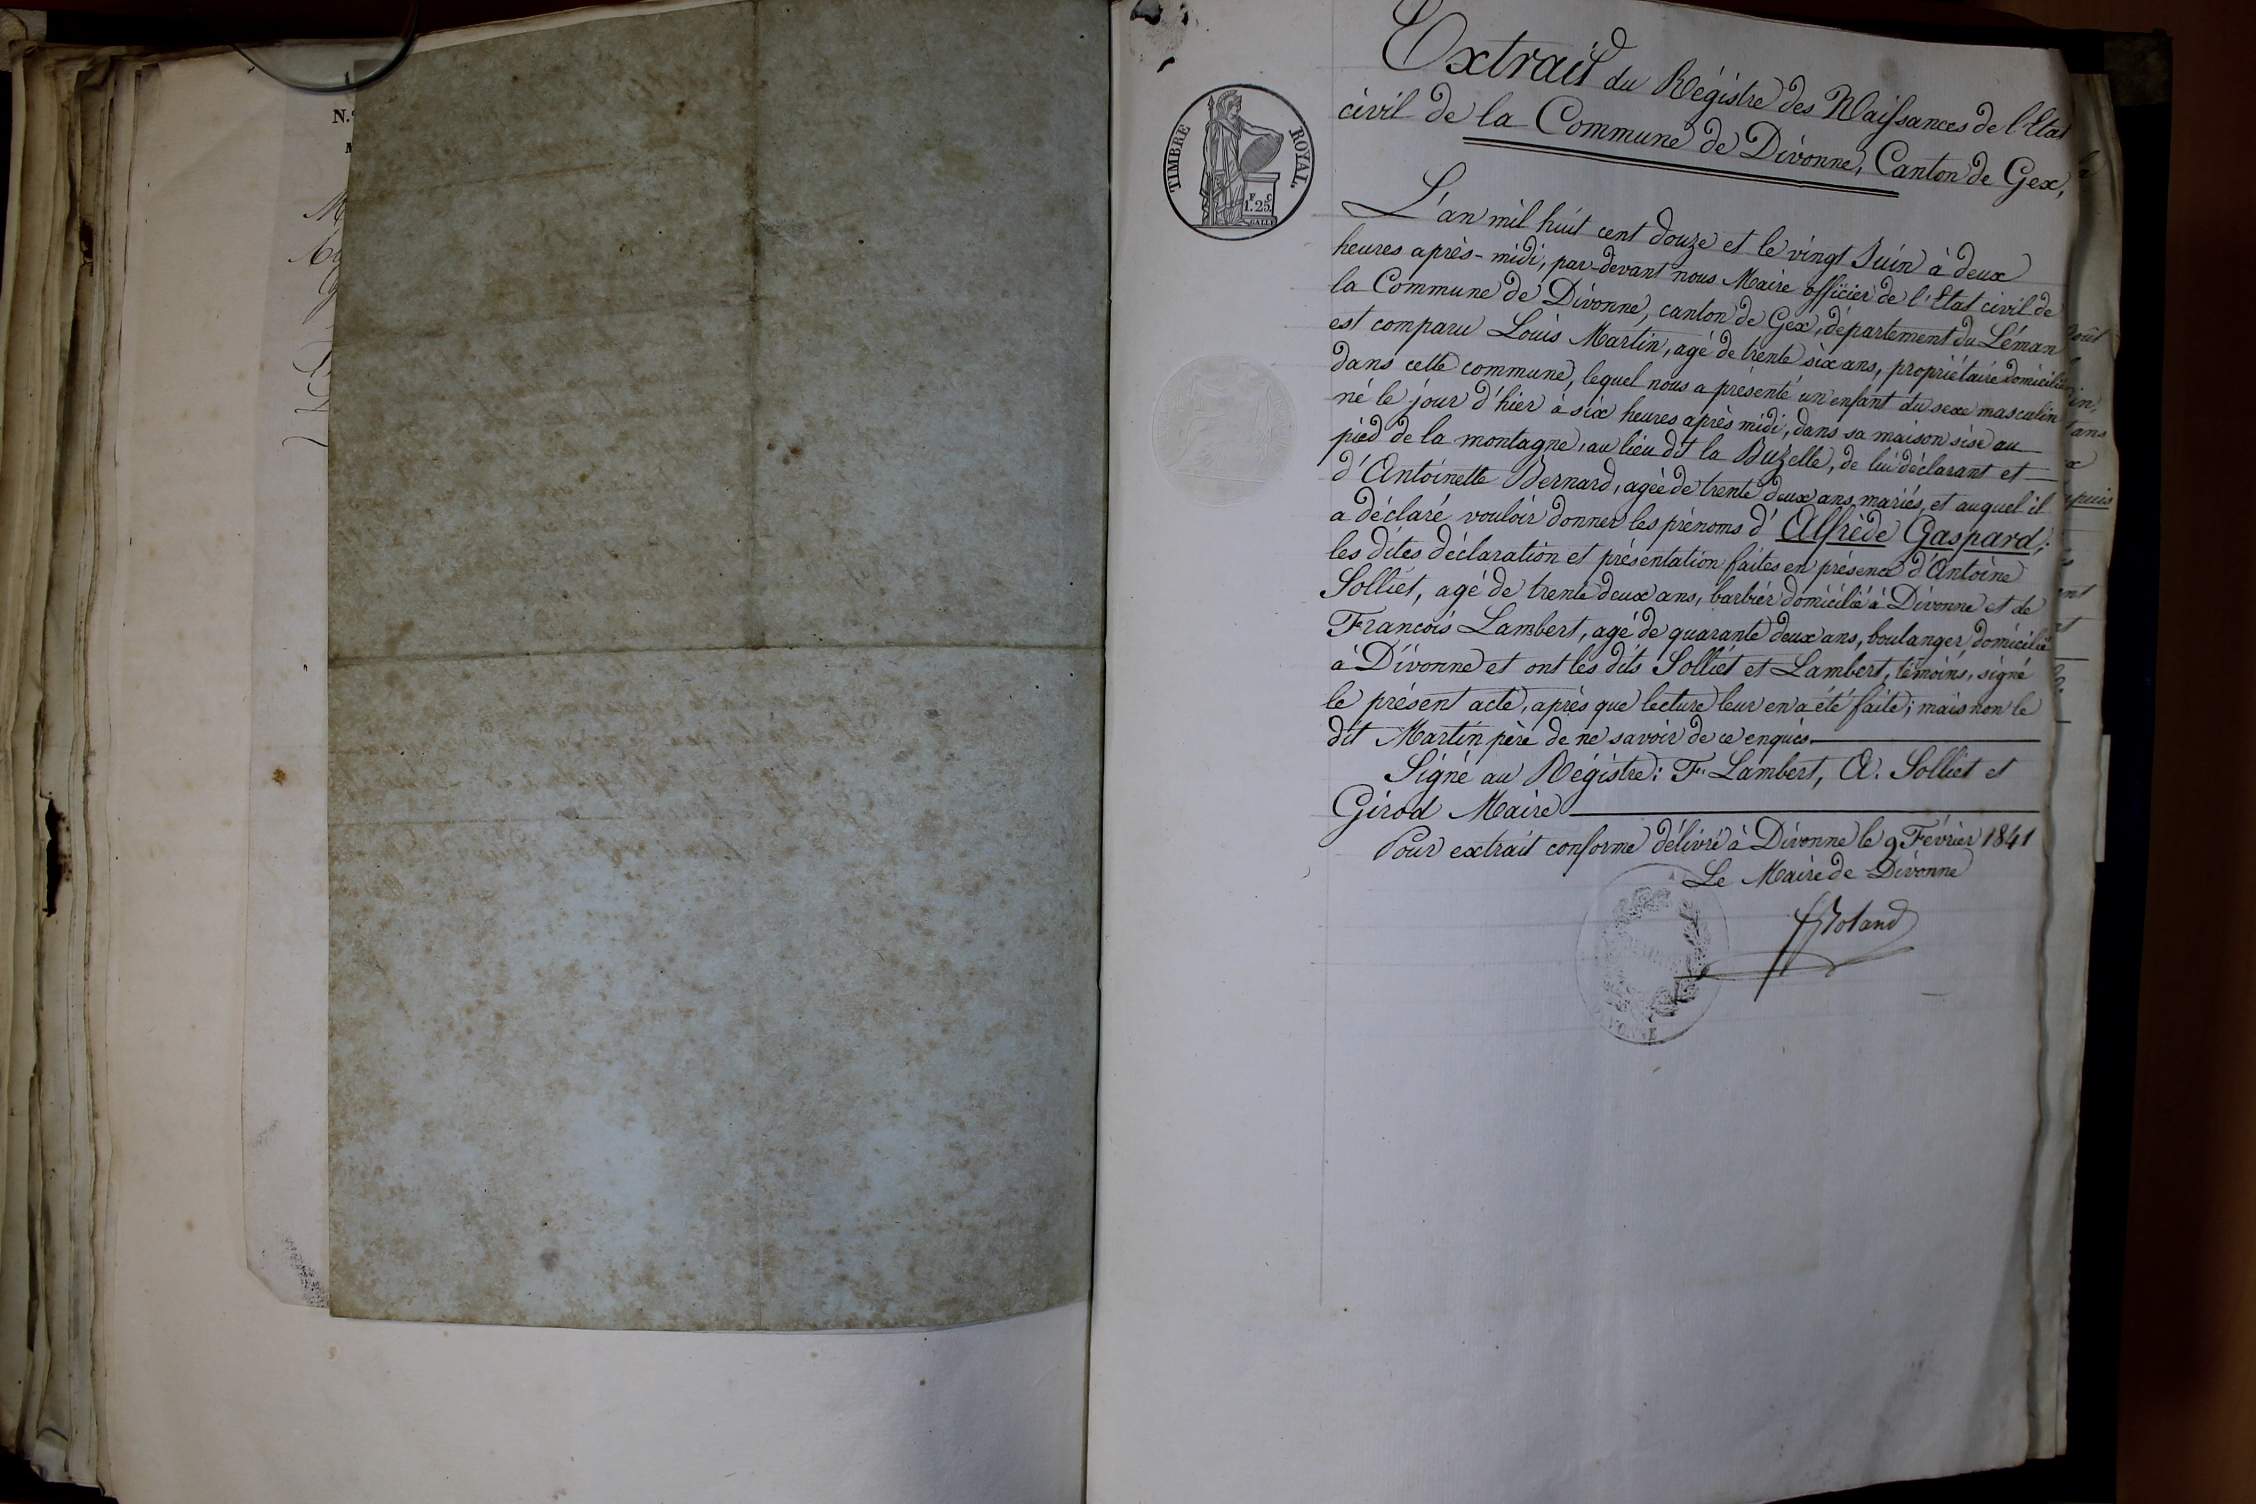 N.
TIMBRE ROYAL.
F C
1.25.
GALLE
Extrait du Régistre des Naissances de l'Etat
civil de la Commune de Divonne, Canton de Gex,
L'an mil huit cent douze et le vingt Juin à deux
heures après-midi, par-devant nous Maire officier de l'Etat civil de
la Commune de Divonne, canton de Gex, département du Léman
est comparu Louis Martin, agé de trente six ans, propriétaire domicilié
dans cette commune, lequel nous a présenté un enfant du sexe masculin
né le jour d'hier à six heures après midi, dans sa maison sise au
pied de la montagne, au lieu dit la Buzelle, de lui déclarant et
d'Antoinette Bernard, agée de trente deux ans, mariés, et auquel il
a déclaré vouloir donner les prénoms d'Alfrède Gaspard;
les dites déclaration et présentation faites en présence d'Antoine
Solliet, agé de trente deux ans, barbier domicilié à Divonne et de
François Lambert, agé de quarante deux ans, boulanger domicilié
à Divonne et ont les dits Solliet et Lambert, témoins, signé
le présent acte, après que lecture leur en a été faite; mais non le
dit Martin père de ne savoir de ce enquis.
Signé au Régistre: F. Lambert, A. Solliet et
Girod Maire
Pour extrait conforme délivré à Divonne le 9 Février 1841
Le Maire de Divonne
Roland